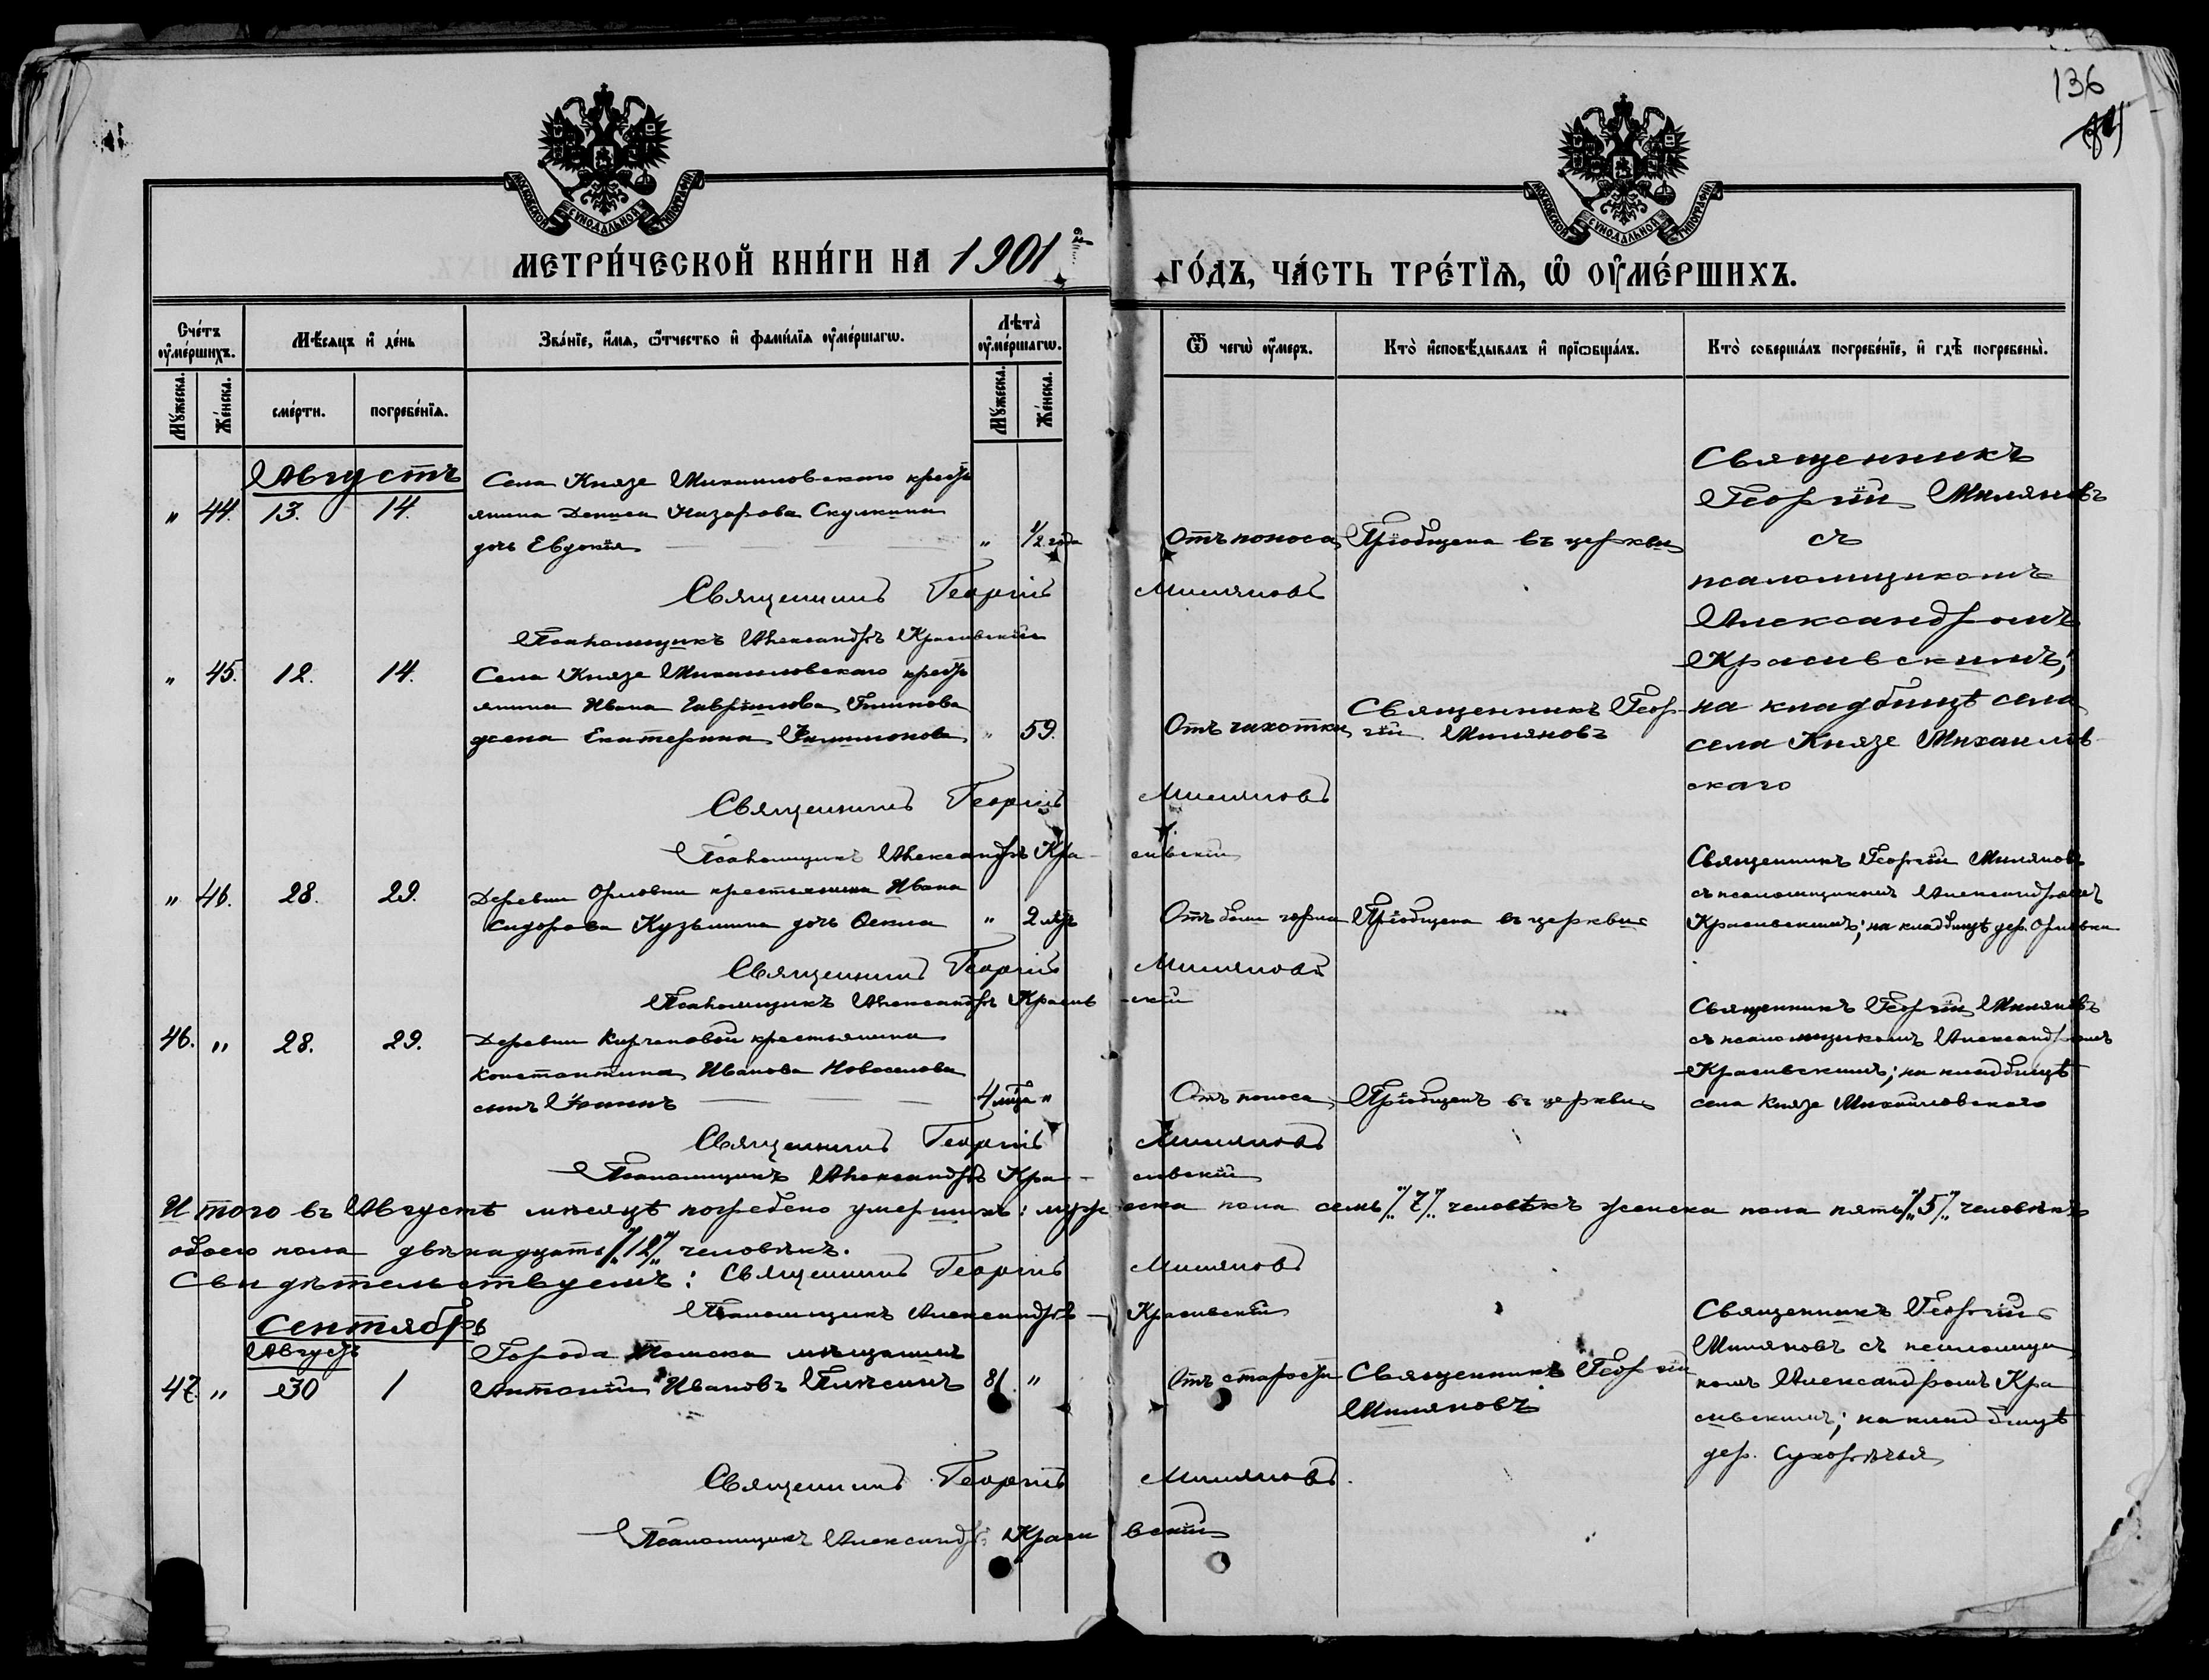 136
МОСКОВСКОЙ СѴНОДАЛЬНОЙ ТИПОГРАФІИ
МОСКОВСКОЙ СѴНОДАЛЬНОЙ ТИПОГРАФІИ
МЕТРИ́ЧЕСКОЙ КНИ́ГИ НА 1901й
ГО́ДЪ, ЧА́СТЬ ТРЕ́ТІѦ, Ѡ ОУ҆МЕ́РШИХЪ.
Сче́тъ оу҆ме́ршихъ.
Мѣ́сяцъ и҆ де́нь
Зва́нїе, и҆́мя, ѻ҆́тчество и҆ фами́лїя оу҆ме́ршагѡ.
Лѣта̀ оу҆ме́ршагѡ.
Ѿ чегѡ̀ оу҆́меръ.
Кто̀ и҆сповѣ́дывалъ и҆ прїѡбща́лъ.
Кто̀ соверша́лъ погребе́нїе, и҆ гдѣ̀ погребены̀.
Мꙋ́жеска.
Же́нска.
сме́рти.
погребе́нїя.
Мꙋ́жеска.
Же́нска.
Августъ
Села Князе Михаиловскаго крестъ
" 44. 13. 14. янина Дениса Назарова Скулкина
дочь Евдокія " 1/2 года Отъ поноса Пріобщена въ церкви
Священникъ
Георгій Миляновъ
съ
псаломщикомъ
Александромъ
Красивскимъ;
на кладбищѣ села
села Князе Михаилов
скаго
Священникъ Георгій Миляновъ
Псаломщикъ Александръ Красивскій
Села Князе Михаиловскаго крестъ
" 45. 12. 14. янина Ивана Гаврилова
жена Екатерина Филимонова " 59. Отъ чахотки
Священникъ Геор
гій Миляновъ
Священникъ Георгій Миляновъ
Псаломщикъ Александръ Кра- сивскій
" 46. 28. 29. Деревни Орловки крестьянина Ивана
Сидорова Кузьмина дочь Ѳекла " 2 лѣтъ Отъ боли горла Пріобщена въ церкви
Священникъ Георгій Миляновъ
съ псаломщикомъ Александромъ
Красивскимъ; на кладбищѣ дер. Орловки
Священникъ Георгій Миляновъ
Псаломщикъ Александръ Красив -скій
46. " 28. 29. Деревни крестьянина
Константина Иванова Новоселова
сынъ Іоаннъ 4 мѣс " Отъ поноса Пріобщенъ въ церкви
Священникъ Георгій Миляновъ
съ псаломщикомъ Александромъ
Красивскимъ; на кладбищѣ
села Князе Михаиловскаго
Священникъ Георгій Миляновъ
Псаломщикъ Александръ Кра- сивскій
Итого въ Августѣ мѣсяцѣ погребено умершихъ: муж еска пола семь /7/ человѣкъ женска пола пять /5/ человѣкъ
обоего пола двѣнадцать /12/ человѣкъ.
Свидѣтельствуемъ: Священникъ Георгій Миляновъ
Псаломщикъ Александръ - Красивскій
Сентябрь
Августъ
Города Томска мѣщанинъ
47. " 30 1 Антоній Ивановъ 81. " Отъ старости
Священникъ Георгій
Миляновъ
Священникъ Георгій
Миляновъ съ псаломщи
комъ Александромъ Кра
сивскимъ; на кладбищѣ
дер. Сухорѣчья
Священникъ Георгій Миляновъ.
Псаломщикъ Александръ Краси вскій